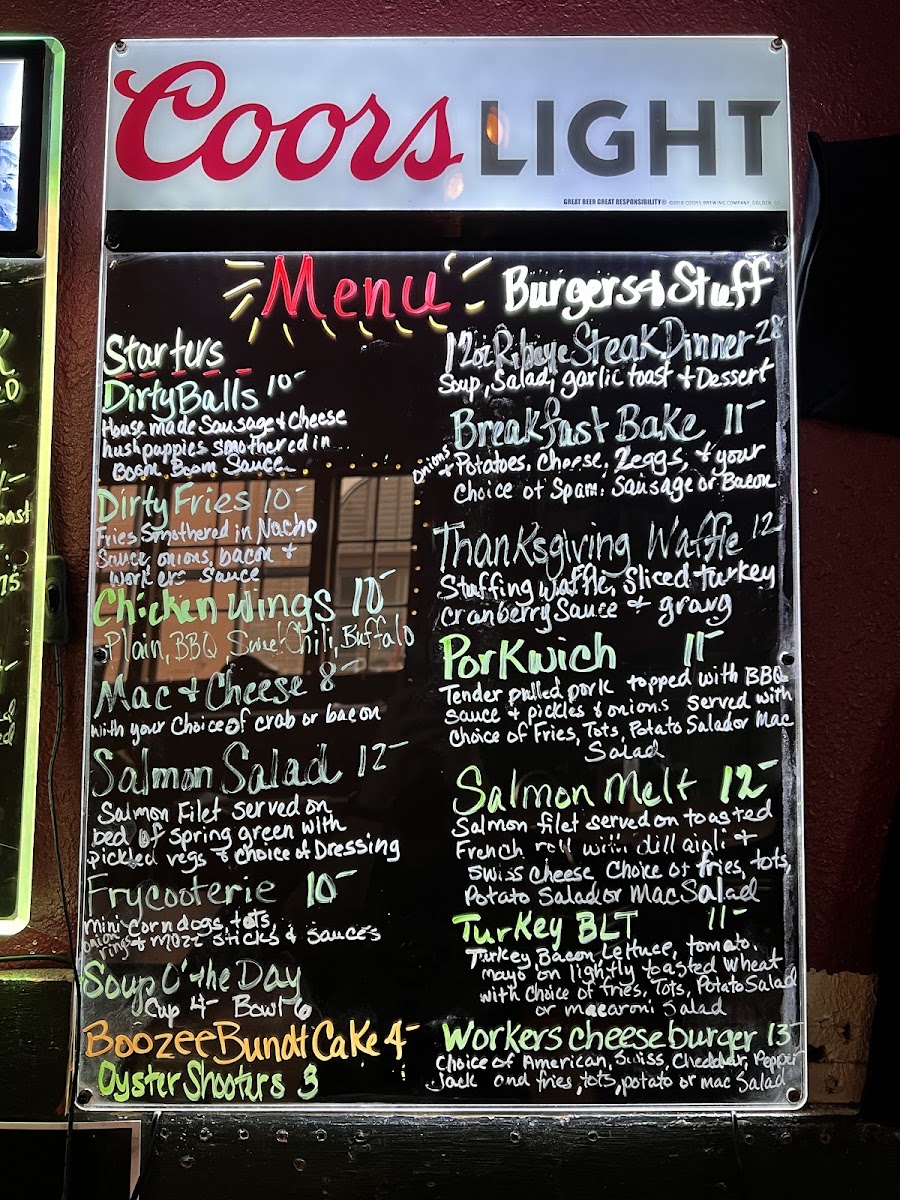 Coors LIGHT
GREAT BEER GREAT RESPONSIBILITY® ©2018 COORS BREWING COMPANY, GOLDEN, CO
Menu
Starturs
Dirty Balls 10-
House made Sausage & Cheese
hushpuppies smothered in
Boom Boom Sauce
Dirty Fries 10-
Fries Smothered in Nacho
Sauce, onions, bacon +
Workers Sauce
Chicken Wings 10-
Plain, BBQ, Sweet Chili, Buffalo
Mac + Cheese 8-
with your Choice of crab or bacon
Salmon Salad 12-
Salmon Filet served on
bed of spring green with
pickled vegs & choice of Dressing
Frycooterie 10-
mini corn dogs, tots,
onion rings & Mozz sticks & sauces
Soup O' the Day
Cup 4- Bowl 6
Boozee Bundt Cake 4-
Oyster Shooturs 3
Burgers & Stuff
12oz Ribeye Steak Dinner 28
Soup, Salad, garlic toast + Dessert
Breakfast Bake 11-
Onions + Potatoes, Cheese, 2eggs, & your
Choice of Spam, Sausage or Bacon
Thanksgiving Waffle 12-
Stuffing waffle, Sliced turkey
cranberry Sauce + gravy
Porkwich 11-
Tender pulled pork topped with BBQ
sauce & pickles & onions served with
Choice of Fries, Tots, Potato Salad or Mac
Salad
Salmon Melt 12-
Salmon filet served on toasted
French roll with dill aioli +
Swiss cheese Choice of fries, tots,
Potato Salad or Mac Salad
Turkey BLT 11-
Turkey Bacon, Lettuce, tomato,
mayo on lightly toasted wheat
with choice of fries, Tots, Potato Salad
or macaroni Salad
Workers cheeseburger 13-
Choice of American, Swiss, Cheddar, Pepper
Jack and fries, tots, potato or mac Salad